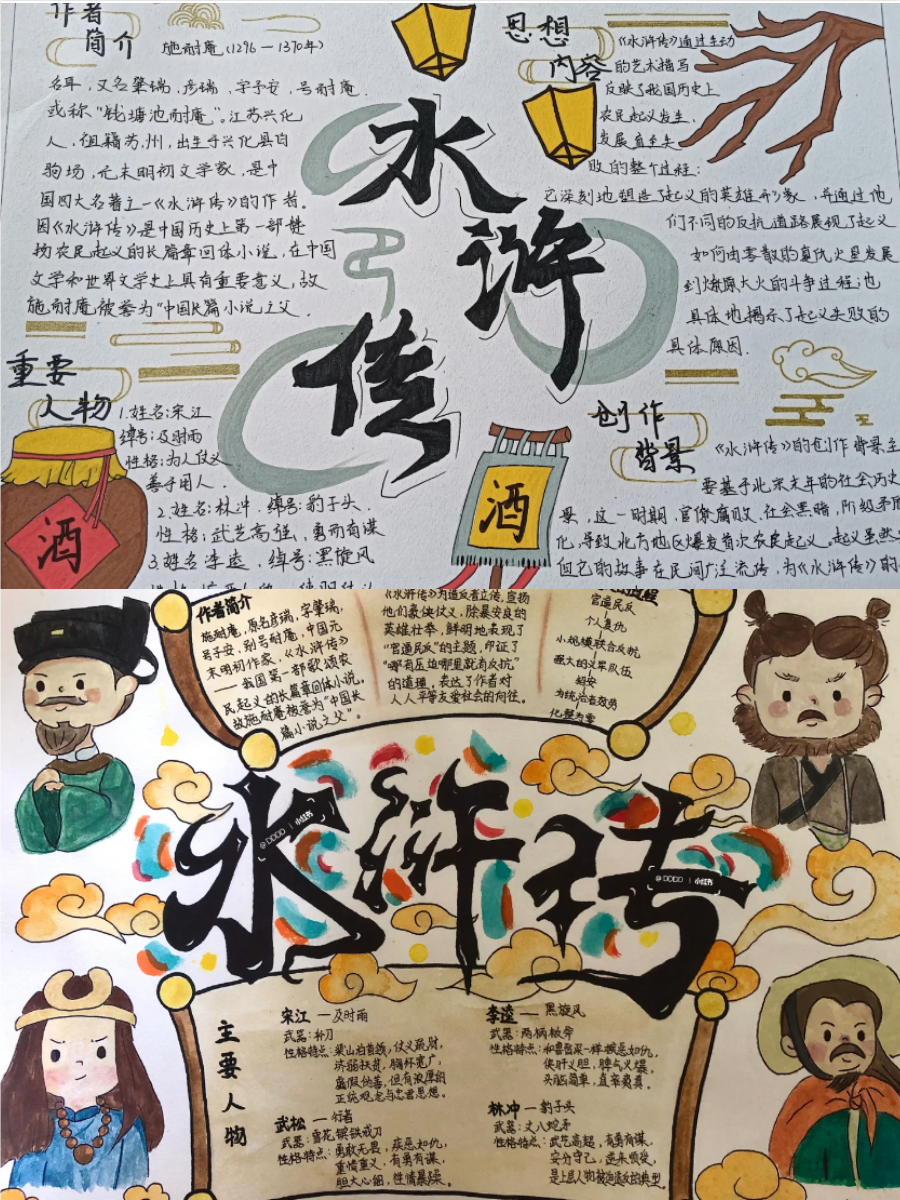 作者
简介
施耐庵(1296－1370年)
名耳,又名肇瑞,彦端,字子安,号耐庵.
或称“钱塘池耐庵”。江苏兴化
人,祖籍苏州,出生于兴化县白
驹场,元末明初文学家,是中
国四大名著之一《水浒传》的作者.
因《水浒传》是中国历史上第一部
农民起义的长篇章回体小说,在中国
文学和世界文学史上具有重要意义,故
施耐庵被誉为“中国长篇小说之父.
水
浒
传
思想
内容
《水浒传》通过生动
的艺术描写
反映了我国历史上
农民起义发生,
发展直至失
败的整个过程:
它深刻地塑造了起义的英雄形象,并通过他
们不同的反抗道路展现了起义
如何由零散的复仇火星发展
到燎原大火的斗争过程;也
具体地揭示了起义失败的
具体原因.
重要
人物
1.姓名:宋江
绰号:及时雨
性格:为人仗义
善于用人.
2.姓名:林冲.绰号:豹子头.
性格:武艺高强、勇而有谋
3.姓名李逵,绰号:黑旋风
酒
酒
创作
背景
《水浒传》的创作背景主
要基于北宋末年的社会历史
景,这一时期,官僚腐败.社会黑暗,阶级矛盾
化,导致北方地区爆发首次农民起义。起义虽然
但它的故事在民间广泛流传,为《水浒传》的
作者简介
施耐庵,原名彦端,字肇瑞,
号子安,别号耐庵,中国元
末明初作家,《水浒传》
——我国第一部歌颂农
民起义的长篇章回体小说,
故施耐庵被誉为“中国长
篇小说之父”。
《水浒传》为造反者立传,宣扬
他们豪侠仗义,除暴安良的
英雄壮举,鲜明地表现了
“官逼民反”的主题,印证了
“哪有压迫哪里就有反抗”
的道理,表达了作者对
人人平等友爱社会的向往。
官逼民反
个人复仇
小规模联合反抗
强大的义军队伍
招安
为统治者效劳
化整为零
水浒传
@DDDD | 小红书
@DDDD | 小红书
主要人物
宋江 — 及时雨
武器:朴刀
性格特点:梁山泊首领,仗义疏财,
济弱扶贫,胸怀宽广,
虚假伪善,但有浓厚的
正统观念与忠君思想。
武松 — 行者
武器:雪花镔铁戒刀
性格特点:勇敢无畏,疾恶如仇,
重情重义,有勇有谋,
胆大心细,性情暴躁。
李逵 — 黑旋风
武器:两柄板斧
性格特点:和鲁智深一样嫉恶如仇,
侠肝义胆,脾气火爆,
头脑简单,直率真真。
林冲 — 豹子头
武器:丈八蛇矛
性格特点:武艺高超,有勇有谋,
安分守己,逆来顺受,
是上层人物被迫造反的典型。